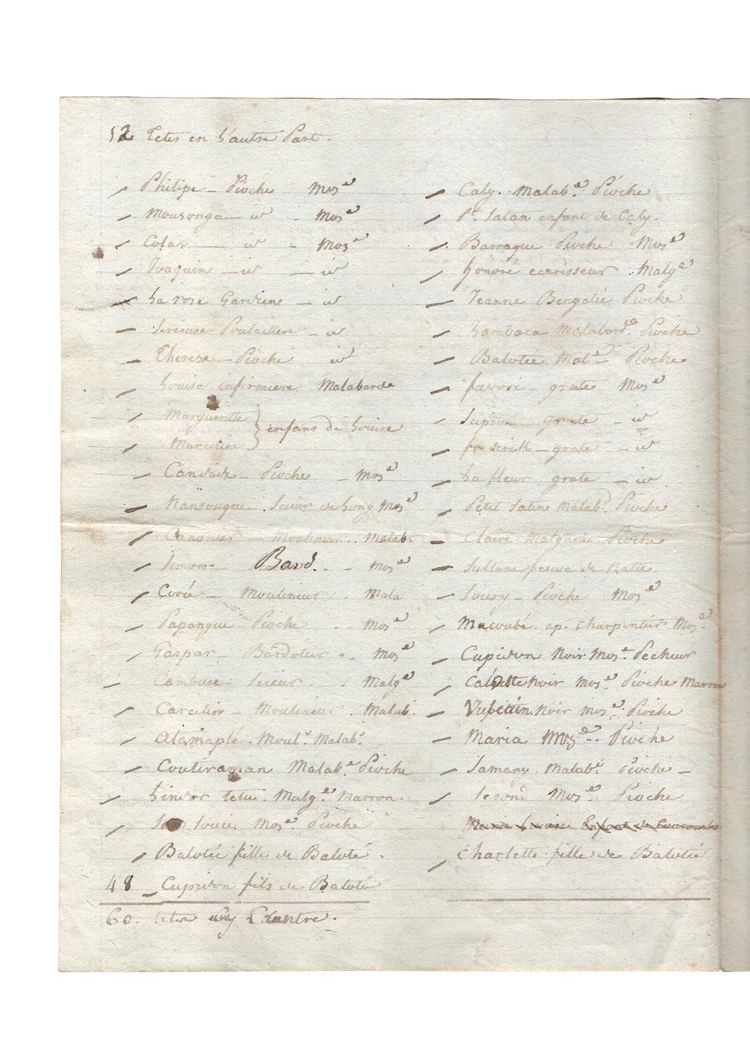 52 Tetes en L'autre Part.
Philipe - Pioche Moz.e
Mousonga - id - Moz.e
Colas - id - Moz.e
Joaquin - id - id
La rose Gardien - id
- id
Therese - Pioche id
Louise infirmiere Malabarde
Marguerite
Marcelin } enfans de Louise
Candide - Pioche - Moz.e
Nansougue Sieur de Long Moz.e
Canonier - Moulineur - Malab.
Simon - Bard. - Moz.e
Moulineur - Mala
Papangue - Pioche - Moz.e
Gaspar - Bardoteur - Moz.e
Cambuse - Sieur - Malg.e
Carcelin - Moulineur - Malab.
Alamaple - Moul.r Malab.e
Coutiraman Malab.e Pioche
hindor tetu - Malg.e Marron
Moz.e Pioche
Balotée fille de Balotée
48 - Cupidon fils de Balotée
60. tetes
Caly. Malab.e Pioche
P.t Salan enfant de Caly.
Barraque Pioche Moz.e
honoré ecarisseur Malg.e
Jeanne Bengalie Pioche
Malabarde Pioche
Balotée Mal.e Pioche
favori - grate Moz.e
Lupin - grate - id
frederik - grate - id
La fleur grate - id
Petit Salan Malab. Pioche
Claire Malgache Pioche
Sultane de Natte
Pioche Moz.e
Macoubé ap. Charpentier Moz.e
Cupidon Noir Moz.e Pecheur
Noir Moz.e Pioche Marron
Vulcain Noir Moz.e Pioche
Maria Moz.e Pioche
Samany Malab.e Pioche -
Second Moz.e Pioche
Charlotte fille de Balotée